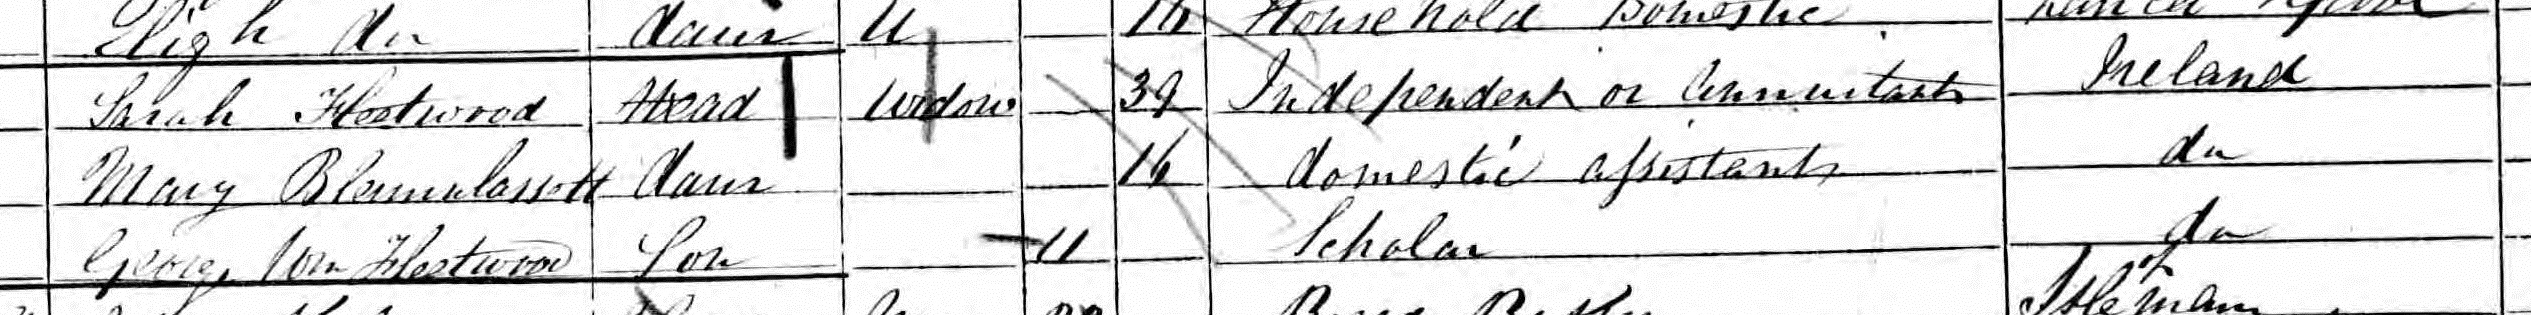 Eliza do daur U 16 Household Domestic
Sarah Fleetwood Head Widow 39 Independent or Annuitant Ireland
Mary daur 16 domestic assistant do
George Wm Fleetwood Son 11 Scholar do
Isle of man